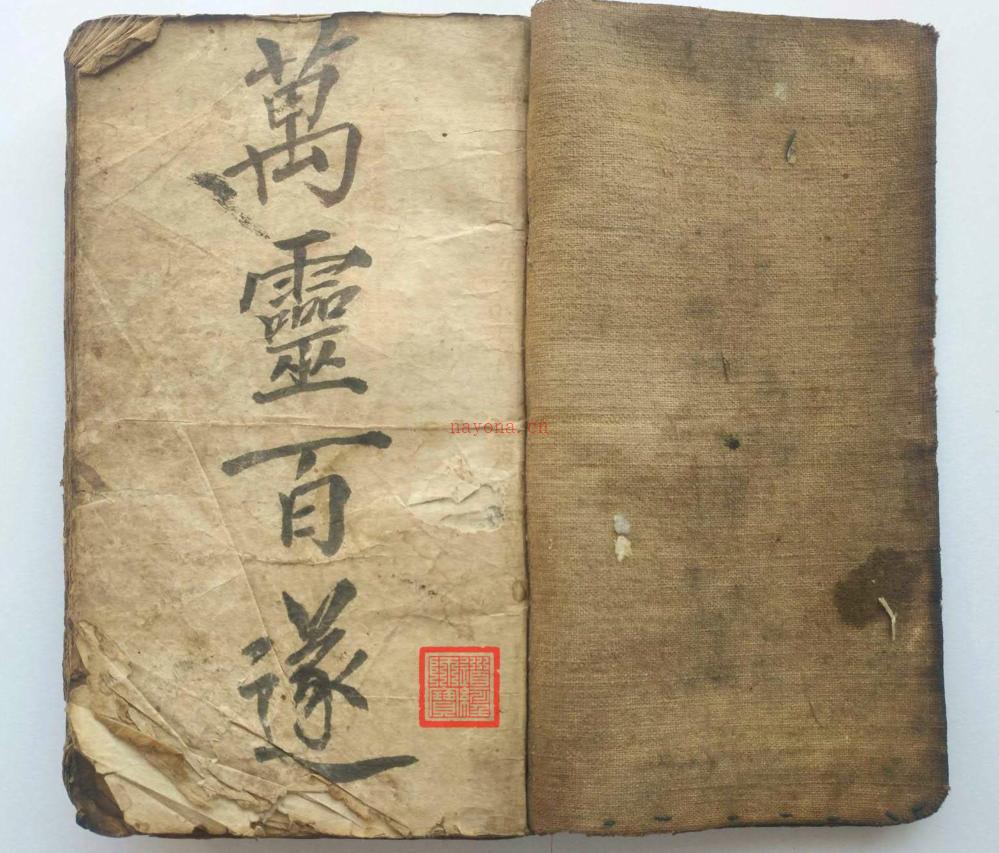 萬靈百遂
nayona.cn